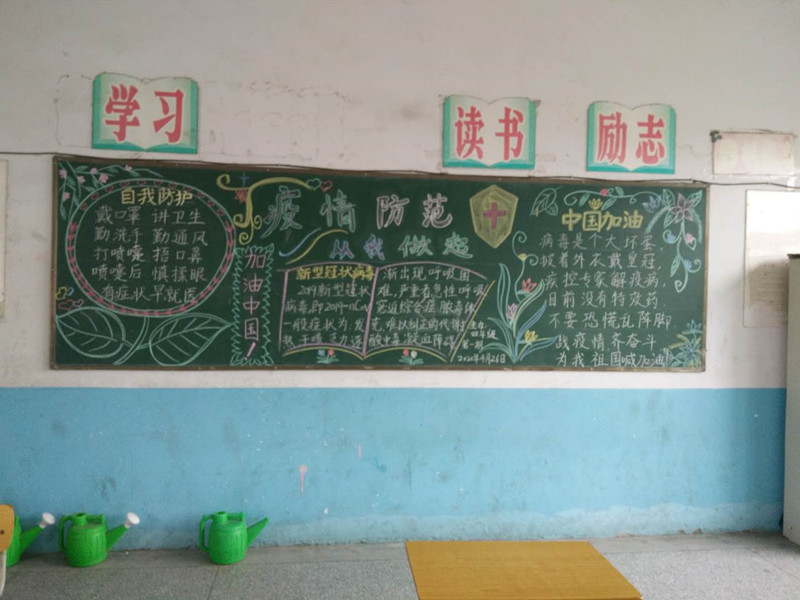 学习
读书
励志
自我防护
戴口罩 讲卫生
勤洗手 勤通风
打喷嚏 捂口鼻
喷嚏后 慎揉眼
有症状早就医
加油中国！
疫情防范
从我做起
新型冠状病毒
2019新型冠状
病毒,即2019-nCoV
一般症状为:发
热、干咳、乏力、逐
渐出现呼吸困
难,严重者急性呼吸
窘迫综合症、脓毒休
克、难以纠正的代谢
酸中毒,凝血障碍
四年级
第一期
2020年4月26日
中国加油
病毒是个大坏蛋
披着外衣戴皇冠,
疾控专家解疫病,
目前没有特效药.
不要恐慌乱阵脚.
战疫情齐奋斗
为我祖国喊加油!